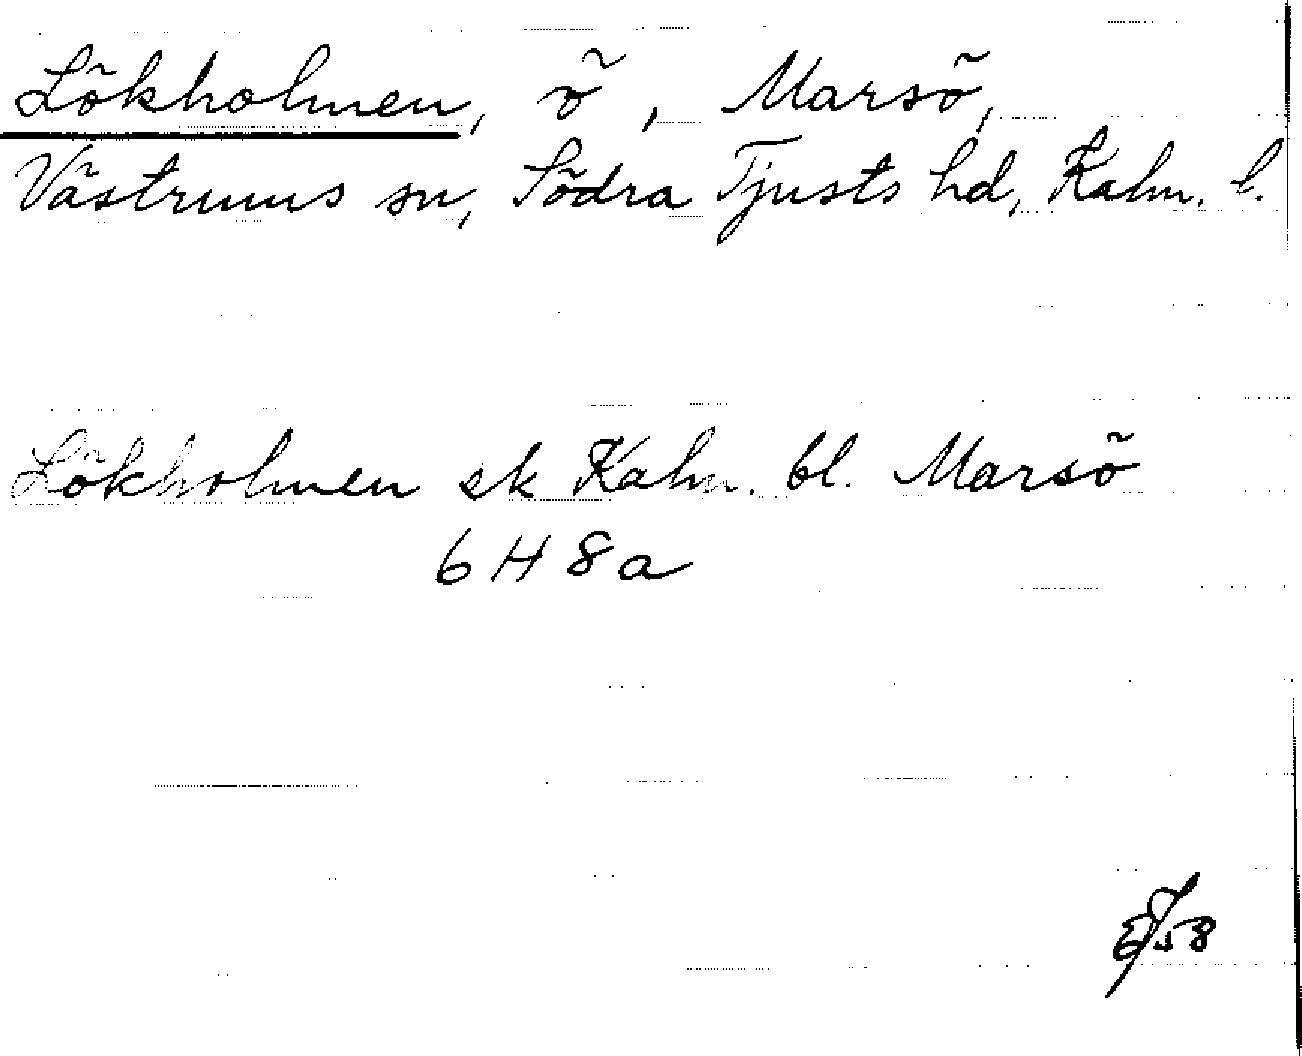 Lökholmen, ö, Marsö,
Västrums sn, Södra Tjusts hd, Kalm. l.
Lökholmen ek Kalm. bl. Marsö
6 H 8 a
58